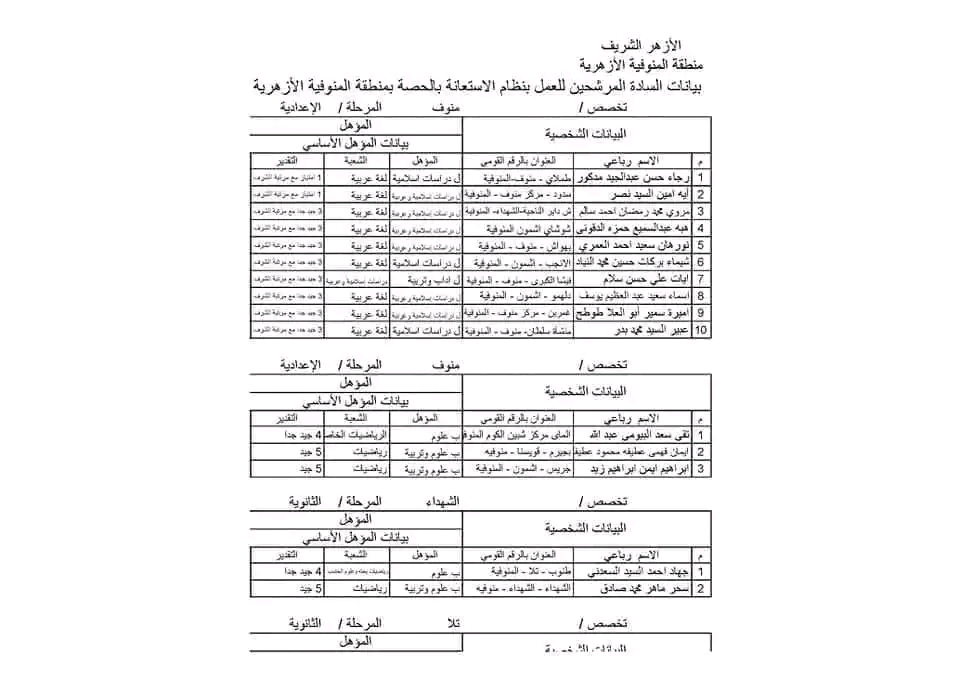 الأزهر الشريف
منطقة المنوفية الأزهرية
بيانات السادة المرشحين للعمل بنظام الاستعانة بالحصة بمنطقة المنوفية الأزهرية
تخصص / منوف المرحلة / الإعدادية
البيانات الشخصية المؤهل
بيانات المؤهل الأساسي
م الاسم رباعي العنوان بالرقم القومي المؤهل الشعبة التقدير
1 رجاء حسن عبدالجيد مدكور طملاي - منوف-المنوفية ل دراسات اسلامية لغة عربية 1 امتياز مع مرتبة الشرف
2 آيه امين السيد نصر سدود - مركز منوف - المنوفية ل دراسات إسلامية وعربية لغة عربية 1 امتياز مع مرتبة الشرف
3 مروي محمد رمضان احمد سالم ش داير الناحية-الشهداء- المنوفية ل دراسات إسلامية وعربية لغة عربية 3 جيد جدا مع مرتبة الشرف
4 هبه عبدالسميع حمزه الدقوني شوشاي اشمون المنوفية ل دراسات إسلامية وعربية لغة عربية 3 جيد جدا مع مرتبة الشرف
5 نورهان سعيد احمد العمري بهواش - منوف - المنوفية ل دراسات إسلامية وعربية لغة عربية 3 جيد جدا مع مرتبة الشرف
6 شيماء بركات حسين محمد النياد الانجب - اشمون - المنوفية ل دراسات اسلامية لغة عربية 3 جيد جدا مع مرتبة الشرف
7 ايات علي حسن سلام فيشا الكبرى - منوف - المنوفية ل اداب وتربية دراسات إسلامية وعربية 3 جيد جدا مع مرتبة الشرف
8 اسماء سعيد عبد العظيم يوسف دلهمو - اشمون - المنوفية ل دراسات إسلامية وعربية لغة عربية 3 جيد جدا مع مرتبة الشرف
9 اميرة سمير أبو العلا طوطح غمرين - مركز منوف - المنوفية ل دراسات إسلامية وعربية لغة عربية 3 جيد جدا مع مرتبة الشرف
10 عبير السيد محمد بدر منشأة سلطان- منوف - المنوفية ل دراسات اسلامية لغة عربية 3 جيد جدا مع مرتبة الشرف
تخصص / منوف المرحلة / الإعدادية
البيانات الشخصية المؤهل
بيانات المؤهل الأساسي
م الاسم رباعي العنوان بالرقم القومي المؤهل الشعبة التقدير
1 تقى سعد البيومى عبد الله الماى مركز شبين الكوم المنوف ب علوم الرياضيات الخاص 4 جيد جدا
2 ايمان فهمى عطيفه محمود عطيف بجيرم - قويسنا - منوفيه ب علوم وتربية رياضيات 5 جيد
3 ابراهيم ايمن ابراهيم زيد جريس - اشمون - المنوفية ب علوم وتربية رياضيات 5 جيد
تخصص / الشهداء المرحلة / الثانوية
البيانات الشخصية المؤهل
بيانات المؤهل الأساسي
م الاسم رباعي العنوان بالرقم القومي المؤهل الشعبة التقدير
1 جهاد احمد السيد السعدني طنوب - تلا - المنوفية ب علوم رياضيات بحته وعلوم الحاسب 4 جيد جدا
2 سحر ماهر محمد صادق الشهداء - الشهداء - منوفيه ب علوم وتربية رياضيات 5 جيد
تخصص / تلا المرحلة / الثانوية
البيانات الشخصية المؤهل